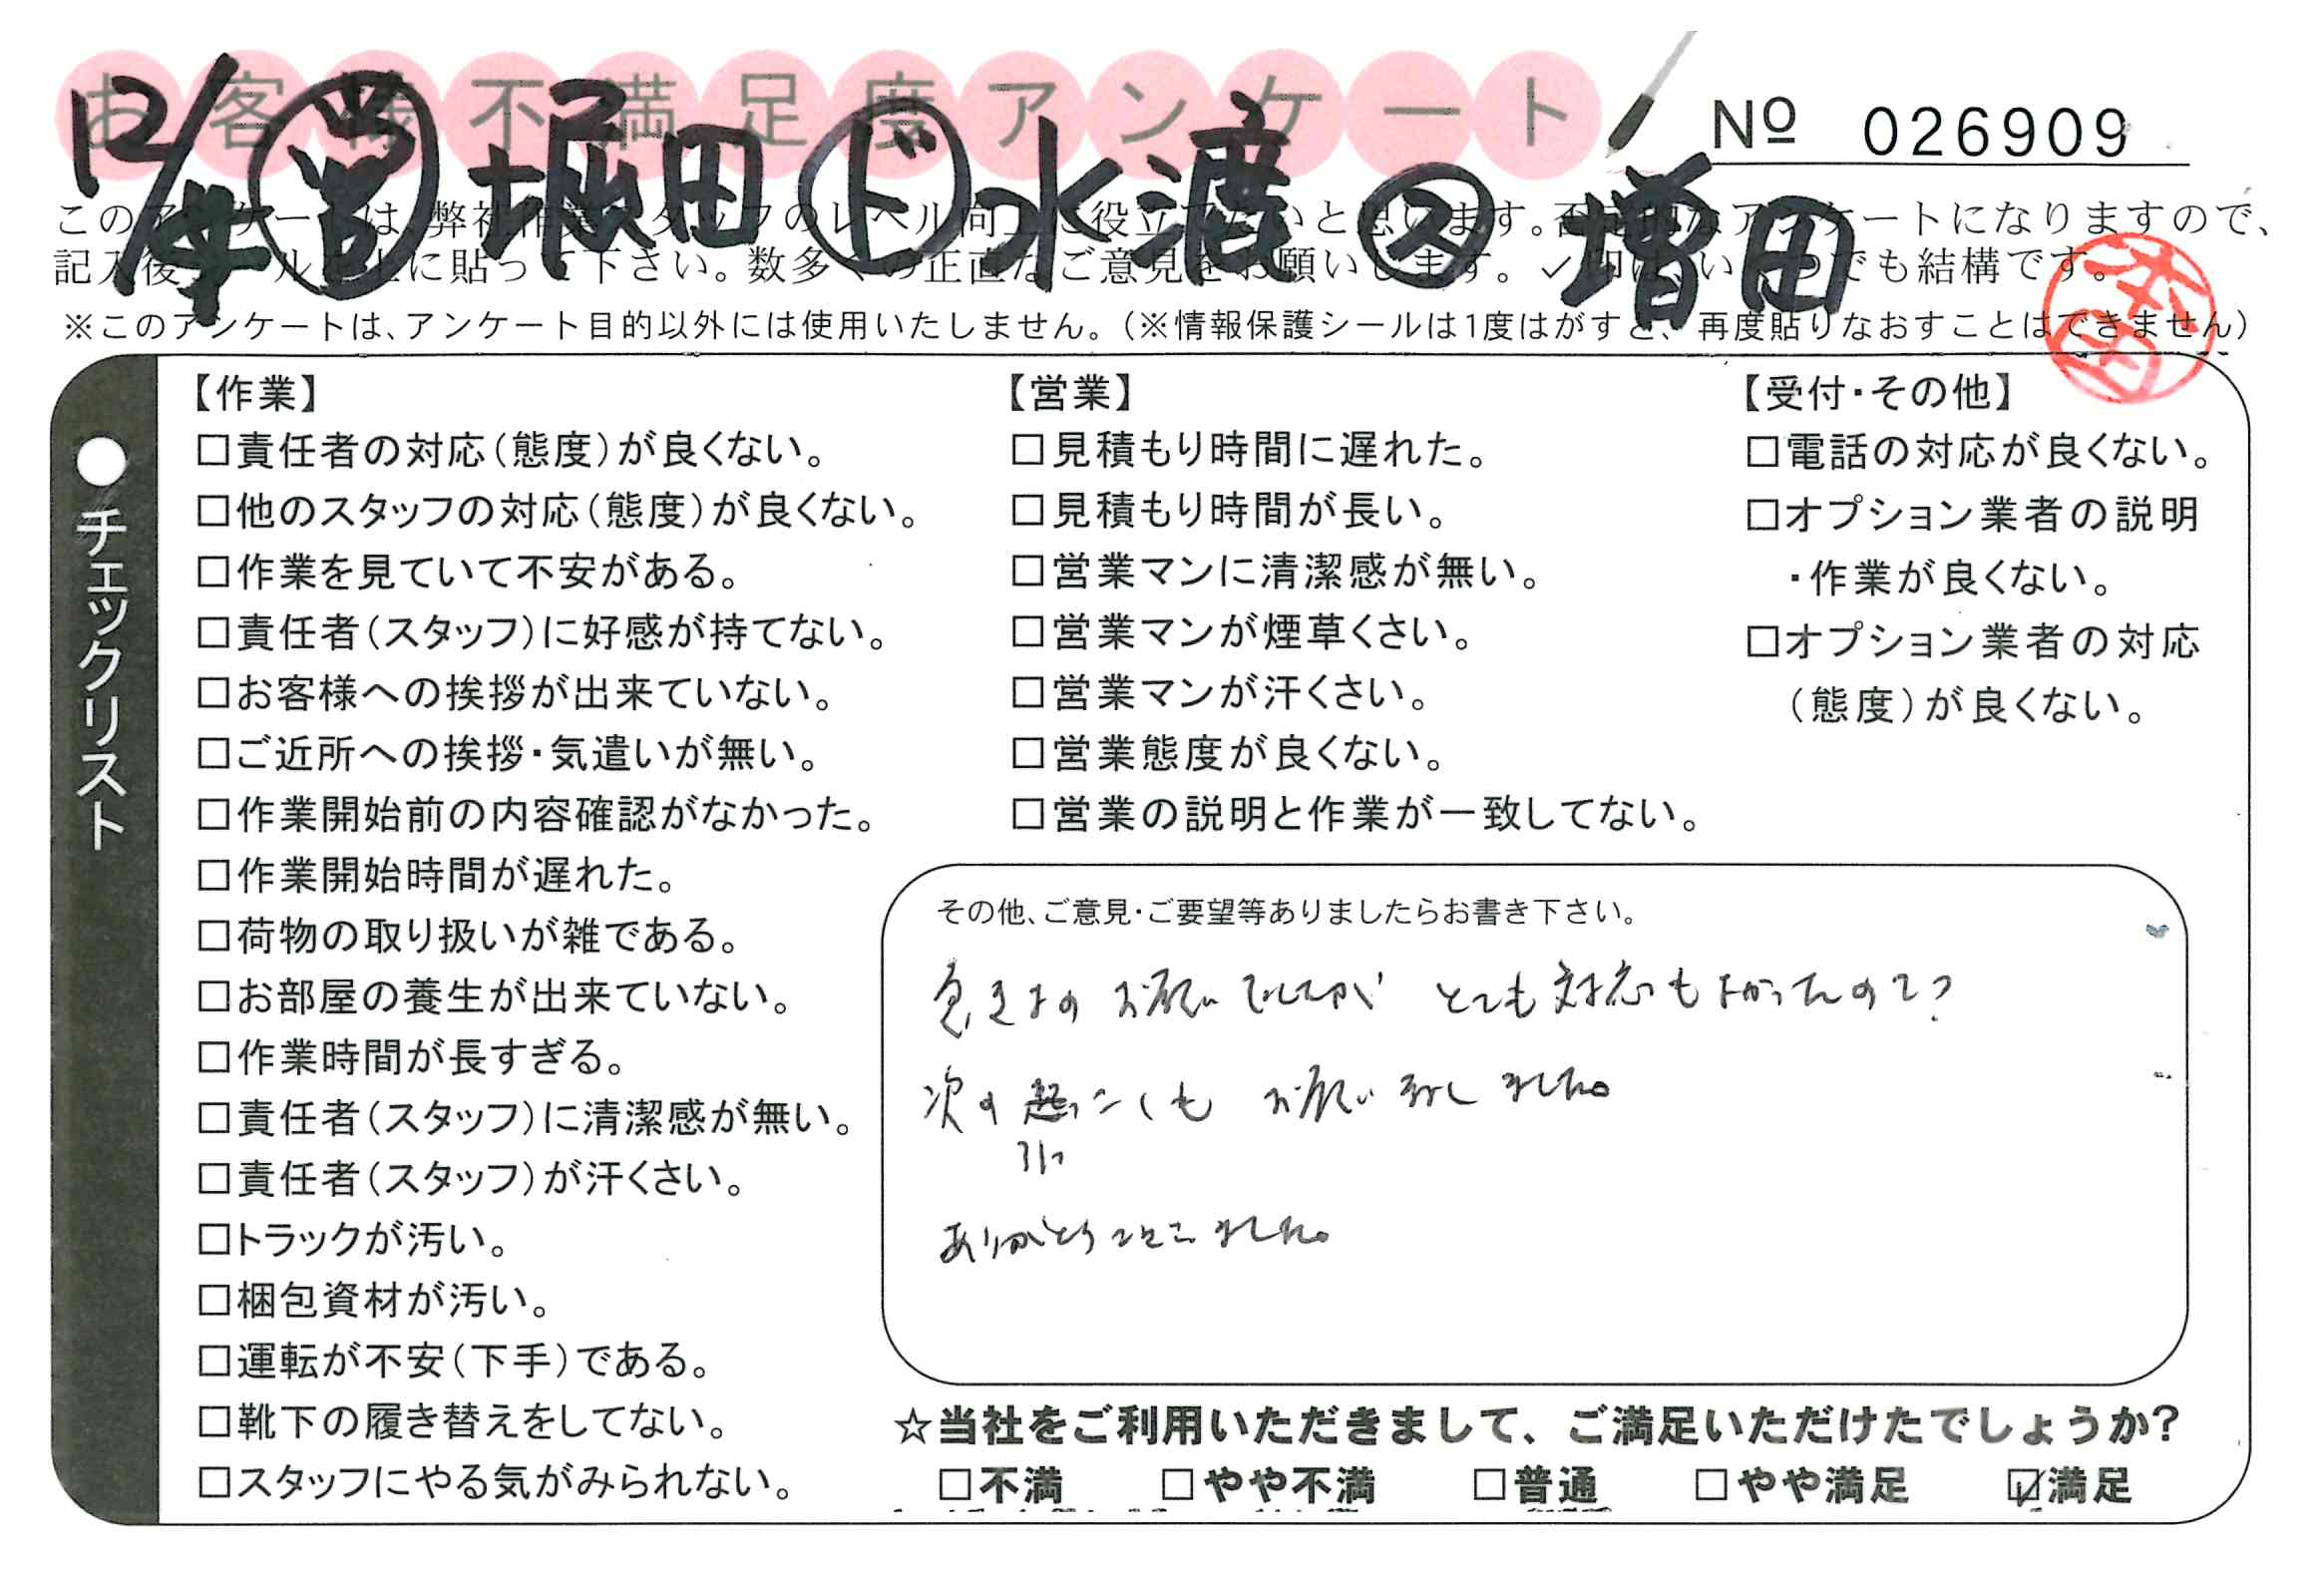 お客様不満足度アンケート
№ 026909
12/4 営 堀田 ド 水漉 ス 増田
このアンケートは、弊社作業スタッフのレベル向上に役立てたいと思います。否定的なアンケートになりますので、
記入後シールを上に貼って下さい。数多くの正直なご意見をお願いします。✓印は、いくつでも結構です。
※このアンケートは、アンケート目的以外には使用いたしません。(※情報保護シールは1度はがすと、再度貼りなおすことはできません)
●チェックリスト
【作業】
□責任者の対応(態度)が良くない。
□他のスタッフの対応(態度)が良くない。
□作業を見ていて不安がある。
□責任者(スタッフ)に好感が持てない。
□お客様への挨拶が出来ていない。
□ご近所への挨拶・気遣いが無い。
□作業開始前の内容確認がなかった。
□作業開始時間が遅れた。
□荷物の取り扱いが雑である。
□お部屋の養生が出来ていない。
□作業時間が長すぎる。
□責任者(スタッフ)に清潔感が無い。
□責任者(スタッフ)が汗くさい。
□トラックが汚い。
□梱包資材が汚い。
□運転が不安(下手)である。
□靴下の履き替えをしてない。
□スタッフにやる気がみられない。
【営業】
□見積もり時間に遅れた。
□見積もり時間が長い。
□営業マンに清潔感が無い。
□営業マンが煙草くさい。
□営業マンが汗くさい。
□営業態度が良くない。
□営業の説明と作業が一致してない。
【受付・その他】
□電話の対応が良くない。
□オプション業者の説明
・作業が良くない。
□オプション業者の対応
(態度)が良くない。
その他、ご意見・ご要望等ありましたらお書き下さい。
急きょの お願いでしたが とても対応もよかったので
次の引っこしも お願い致しました。
ありがとうございました。
☆当社をご利用いただきまして、ご満足いただけたでしょうか?
□不満 □やや不満 □普通 □やや満足 ☑満足